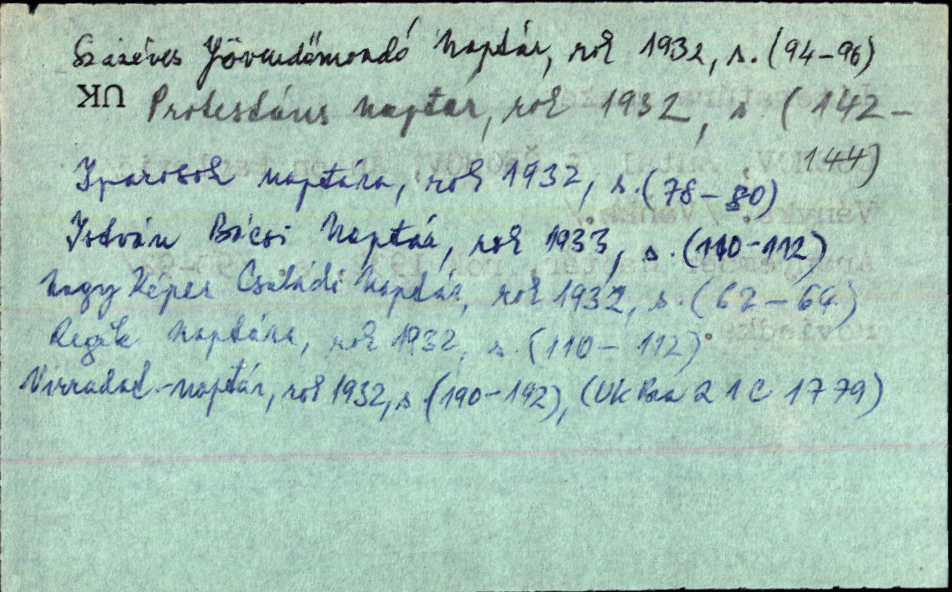 Százéves Jövendőmondó Naptár, rok 1932, s. (94-96)
UK Protestáns naptár, rok 1932, s. (142-
144)
Iparosok naptára, rok 1932, s. (78-80)
István Bácsi Naptár, rok 1933, s. (110-112)
Nagy Képes Családi Naptár, rok 1932, s. (62-64)
Regék Naptára, rok 1932, s. (110-112)
Virradat-naptár, rok 1932, s (190-192), (UKBra 2 1C 1779)